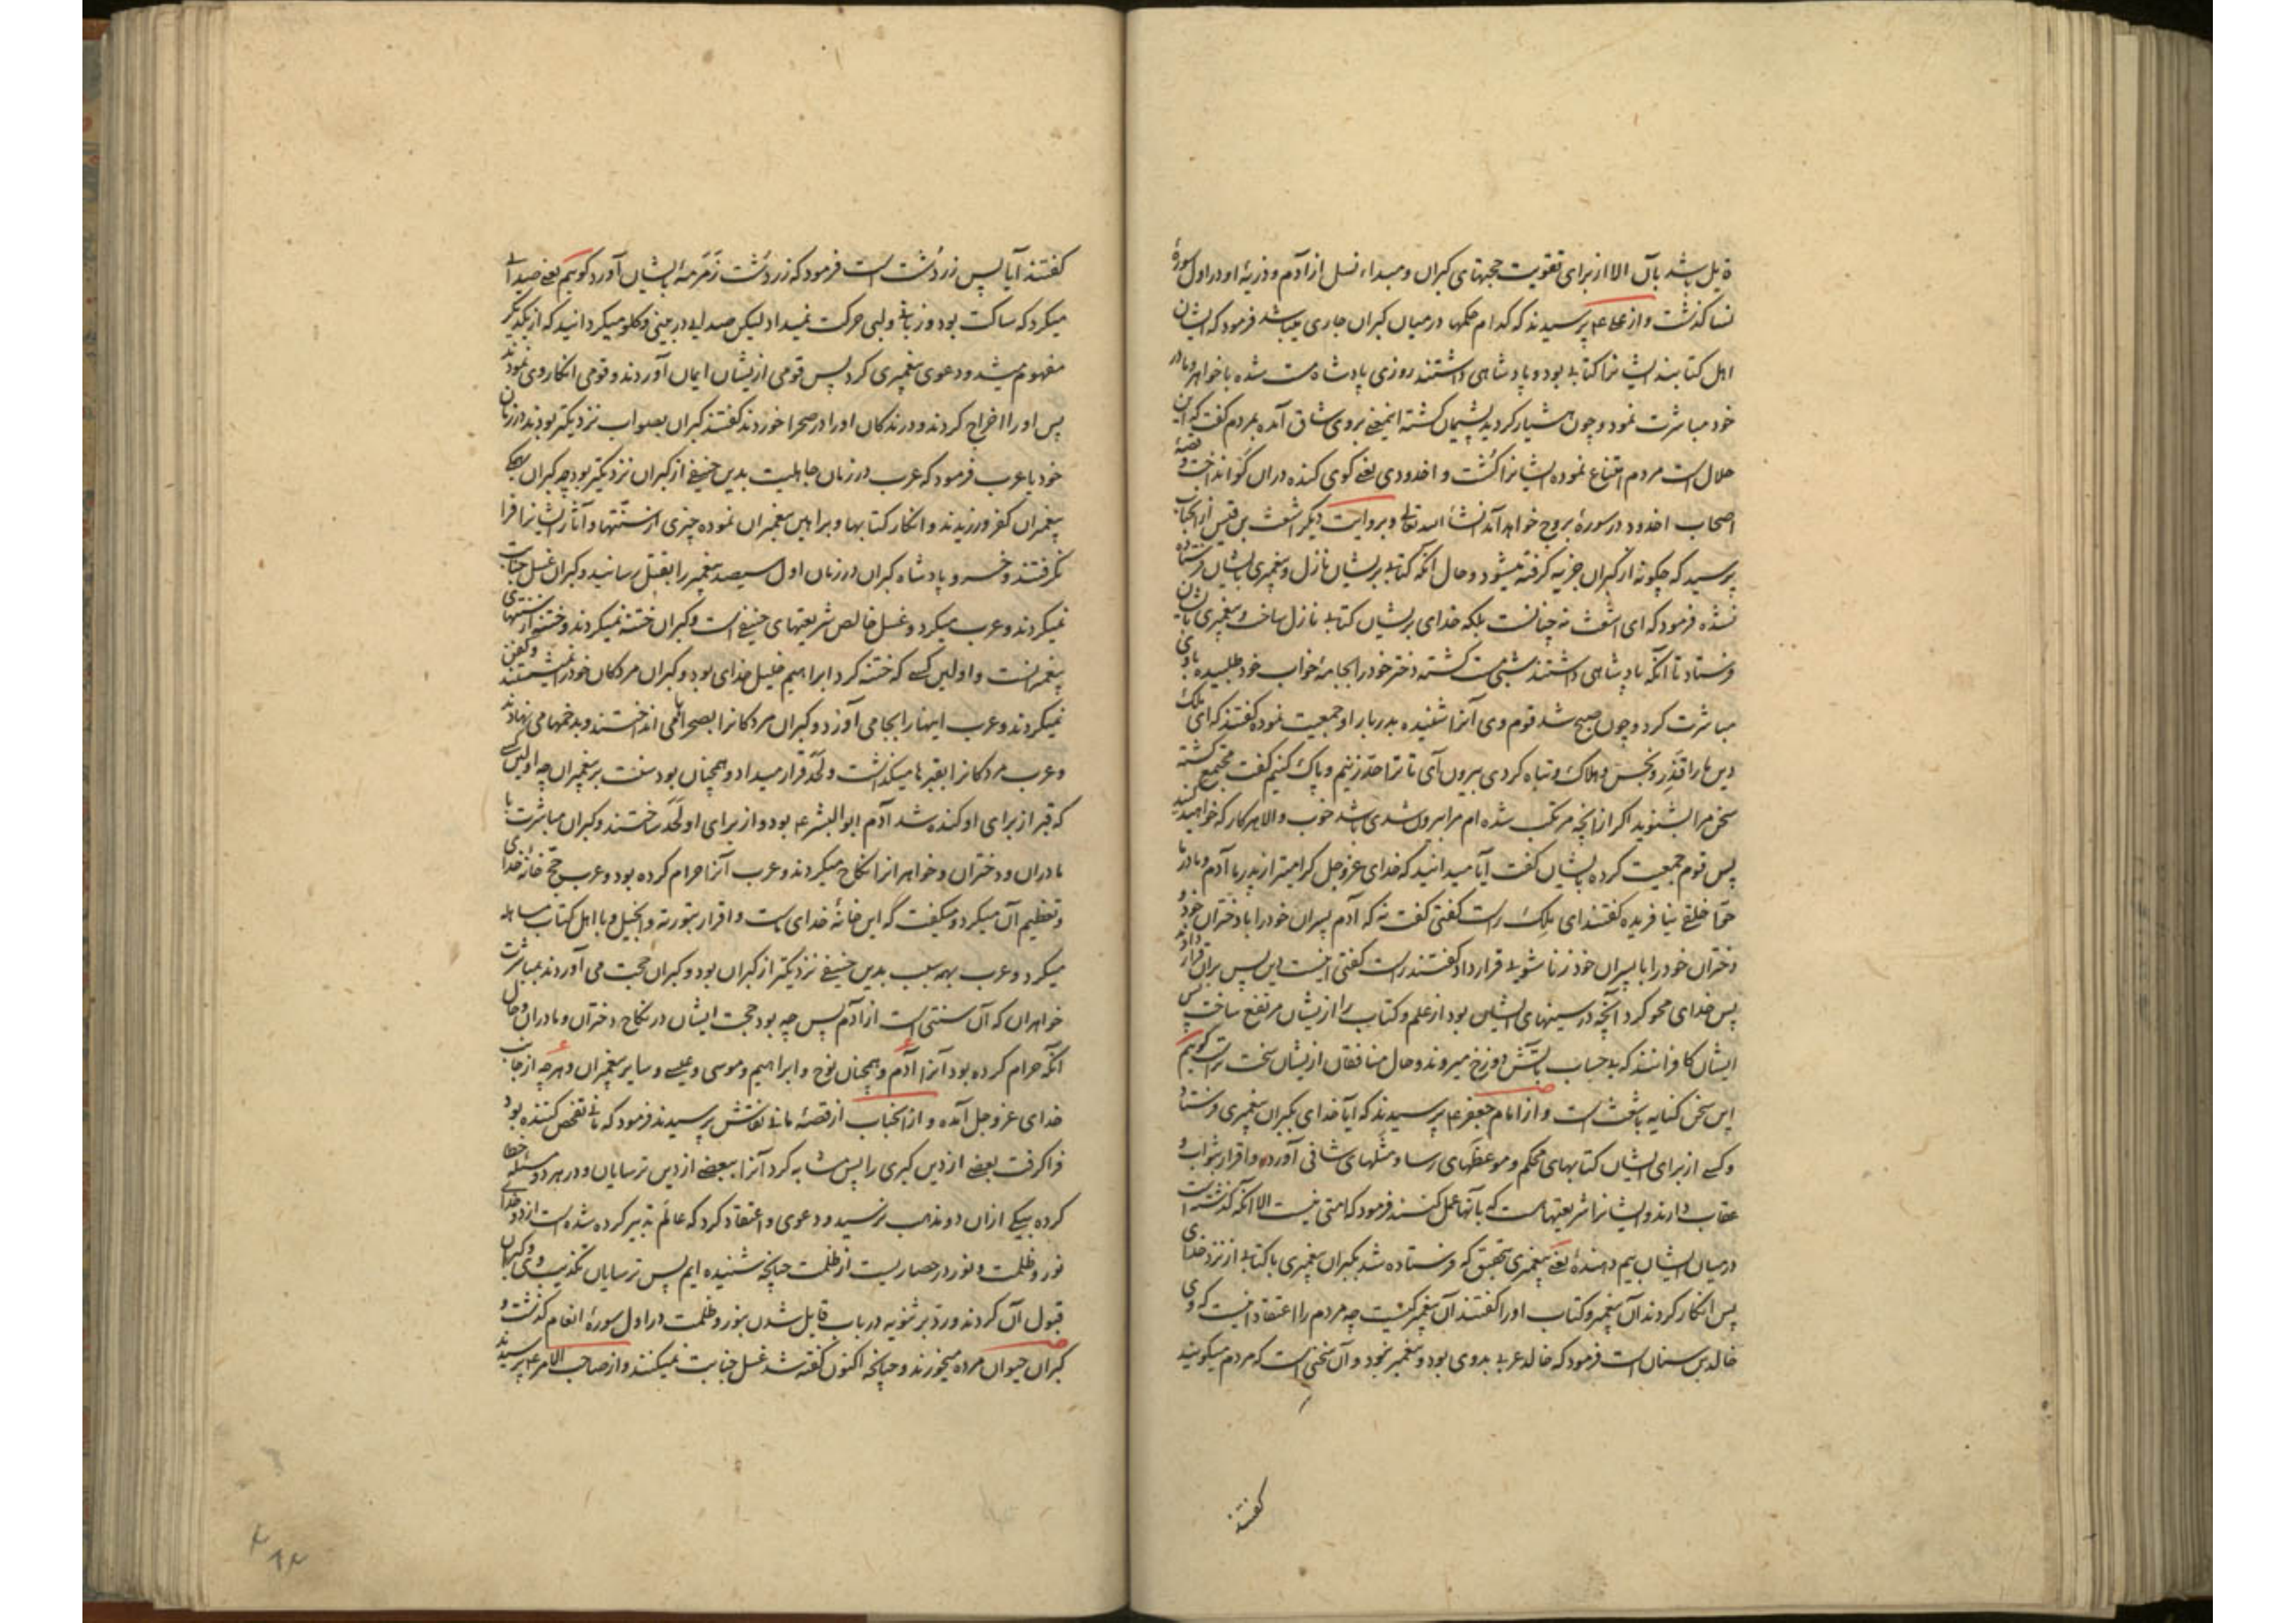 قایل باشد بآن الا از برای تقویت حجتهای کبران و مبداء نسل از آدم و ذریهٔ او در اول سورهٔ
نسا کذشت و از علی ع پرسیدند که کدام حکمها در میان کبران جاری میباشد فرمود که ایشان
اهل کتابند ایشانرا کتابی بود و پادشاهی داشتند روزی پادشاه مست شده با خواهر و مادر
خود مباشرت نمود و چون هشیار کردید پشیمان کشته اینمعنی بروی شاق آمده بمردم کفت که این
حلال است مردم امتناع نموده ایشانرا کشت و اخدودی یعنی کوی کنده در آن کو انداخت و قصهٔ
اصحاب اخدود در سورهٔ بروج خواهد آمد انشاء الله تعالی و بروایت دیکر اشعث بن قیس از آنجناب
پرسید که چکونه از کبران جزیه کرفته میشود و حال آنکه کتابی بریشان نازل و پیغمبری بایشان فرستاده
نشده فرمود که ای اشعث نه چنانست بلکه خدای بریشان کتابی نازل ساخت و پیغمبری بایشان
فرستاد تا آنکه پادشاهی داشتند شبی مست کشته دختر خود را بجامهٔ خواب خود طلبیده با وی
مباشرت کرد و چون صبح شد قوم وی آنرا شنیده بدربار او جمعیت نموده کفتند که ای ملک
دین ما را قذر و نجس و هلاک و تباه کردی بیرون آی تا ترا حد زنیم و پاک کنیم کفت مجتمع کشته
سخن مرا بشنوید اکر از آنچه مرتکب شده ام مرا بیرون شدی باشد خوب و الا هر کار که خواهید کنید
پس قوم جمعیت کرده بایشان کفت آیا میدانید که خدای عز و جل کرامیتر از پدر ما آدم و مادر ما
حوا خلقی نیافریده کفتند ای ملک راست کفتی کفت نه که آدم پسران خود را با دختران خود و
دختران خود را با پسران خود زناشویی قرار داد کفتند راست کفتی اینست دین پس بران قرار دادند
پس خدای محو کرد آنچه در سینهای ایشان بود از علم و کتاب را از ایشان مرتفع ساخت پس
ایشان کافرانند که بیحساب بآتش دوزخ میروند و حال منافقان از یشان سخت تر است کویم
این سخن کنایه باشعث است و از امام جعفر ع پرسیدند که آیا خدای بکبران پیغمبری فرستاد
و کسی از برای ایشان کتابهای محکم و موعظهای رسا و مثلهای شافی آورده و اقرار بثواب و
عقاب دارند و ایشانرا شریعتهاست که بآنها عمل کنند فرمود که امتی نیست الا آنکه کذشته است
در میان ایشان بیم دهندهٔ یعنی پیغمبری بتحقیق که فرستاده شد بکبران پیغمبری با کتابی از نزد خدای
پس انکار کردند آن پیغمبر و کتاب او را کفتند آن پیغمبر کیست چه مردم را اعتقاد اینست که وی
خالد بن سنان است فرمود که خالد عربی بدوی بود و پیغمبر نبود و آن سخنی است که مردم میکویند
کفتند
کفتند آیا پس زردشت است فرمود که زردشت زمزمهٔ بایشان آورد کویم یعنی صدایی
میکرد که ساکت بود و زبانی و لبی حرکت نمیداد لیکن صدایی در بینی و کلو میکردانید که از یکدیکر
مفهوم میشد و دعوی پیغمبری کرد پس قومی از یشان ایمان آوردند و قومی انکار وی نمودند
پس او را اخراج کردند و درندکان او را در صحرا خوردند کفتند کبران بصواب نزدیکتر بودند در زمان
خود یا عرب فرمود که عرب در زمان جاهلیت بدین حنیفی از کبران نزدیکتر بود چه کبران بهمکی
پیغمبران کفر ورزیدند و انکار کتابها و براهین پیغمبران نموده چیزی از سنتها و آثار ایشانرا فرا
نکرفتند و خسرو پادشاه کبران در زمان اول سیصد پیغمبر را بقتل رسانید و کبران غسل جنابت
نمیکردند و عرب میکرد و غسل خالص شریعتهای حنیفی است و کبران ختنه نمیکردند و ختنه از سنتهای
پیغمبرانست و اولین کسی که ختنه کرد ابراهیم خلیل خدای بود و کبران مردکان خود را نمیشستند و کفن
نمیکردند و عرب اینها را بجا می آورد و کبران مردکانرا بصحراها می انداختند و بدخمها می نهادند
و عرب مردکانرا بقبرها میکذاشت و لحد قرار میداد و همچنان بود سنت پیغمبران چه اولین کسی
که قبر از برای او کنده شد آدم ابوالبشر ع بود و از برای او لحد ساختند و کبران مباشرت با
مادران و دختران و خواهرانرا نکاح میکردند و عرب آنرا حرام کرده بود و عرب حج خانهٔ خدای
و تعظیم آن میکرد و میکفت که این خانهٔ خدای ماست و اقرار بتوریة و انجیل و با اهل کتاب مساهله
میکرد و عرب بهمه سبب بدین حنیفی نزدیکتر از کبران بود و کبران حجت می آوردند بمباشرت
خواهران که آن سنتی است از آدم پس چه بود حجت ایشان در نکاح دختران و مادران و حال
آنکه حرام کرده بود آنرا آدم و همچنان نوح و ابراهیم و موسی و عیسی و سایر پیغمبران و هر چه از جانب
خدای عز و جل آمده و از آنجناب از قصهٔ مانی نقاش پرسیدند فرمود که مانی تفحص کننده بود
فرا کرفت بعضی از دین کبری را پس مشابه کرد آنرا ببعضی از دین ترسایان و در هر دو مسئله خطا
کرده بیکی از ان دو مذهب نرسید و دعوی و اعتقاد کرد که عالم تدبیر کرده شده است از دو خدای
نور و ظلمت و نور در حصاریست از ظلمت چنانچه شنیده ایم پس ترسایان تکذیب وی و کبران
قبول آن کردند و رد بر ثنویه در باب قایل شدن بنور و ظلمت در اول سورهٔ انعام کذشت و
کبران حیوان مرده میخورند و چنانچه اکنون کفته شد غسل جنابت نمیکنند و از صاحب الامر ع پرسیدند